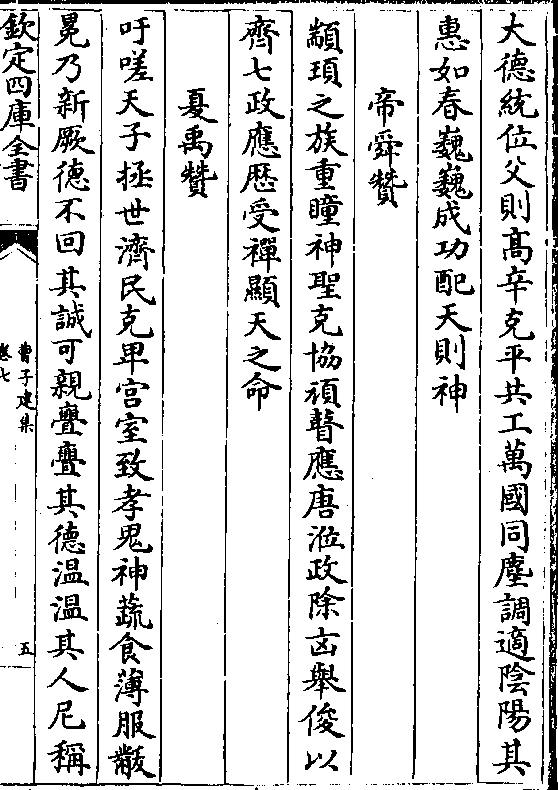 大德統位父則髙辛克平共工萬國同塵調適陰陽其
惠如春巍巍成功配天則神
帝舜贊
顓頊之族重瞳神聖克協頑瞽應唐涖政除凶舉俊以
齊七政應厯受禪顯天之命
夏禹贊
吁嗟天子拯世濟民克卑宫室致孝鬼神蔬食薄服黻
冕乃新厥德不回其誠可親亹亹其德温温其人尼稱
欽定四庫全書
曹子建集
卷七
五